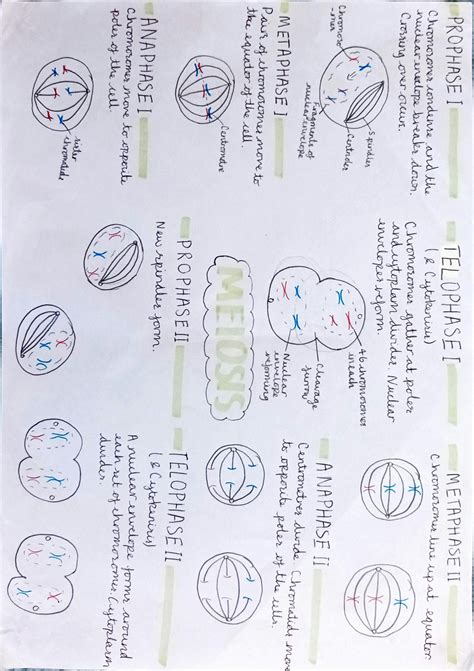 PROPHASE I
Chromosomes condense and the
nuclear envelope breaks down.
Crossing over occurs.
Chromoso
-mes
Spindles
Centrioles
Fragments of
nuclear envelope
METAPHASE I
Pairs of chromosomes move to
the equator of the cell.
Centromere
ANAPHASE I
Chromosomes move to opposite
poles of the cell.
sister
chromatids
TELOPHASE I
(& Cytokenisis)
Chromosomes gather at poles
and cytoplasm divides. Nuclear
envelopes reform.
46 chromosomes
in each
Cleavage
furrow
Nuclear
envelope
reforming
MEIOSIS
PROPHASE II
New spindles form.
METAPHASE II
Chromosomes line up at equator
ANAPHASE II
Centromeres divide. Chromatids move
to opposite poles of the cells.
TELOPHASE II
(& Cytokenisis)
A nuclear envelope forms around
each set of chromosomes. Cytoplasm
divides.